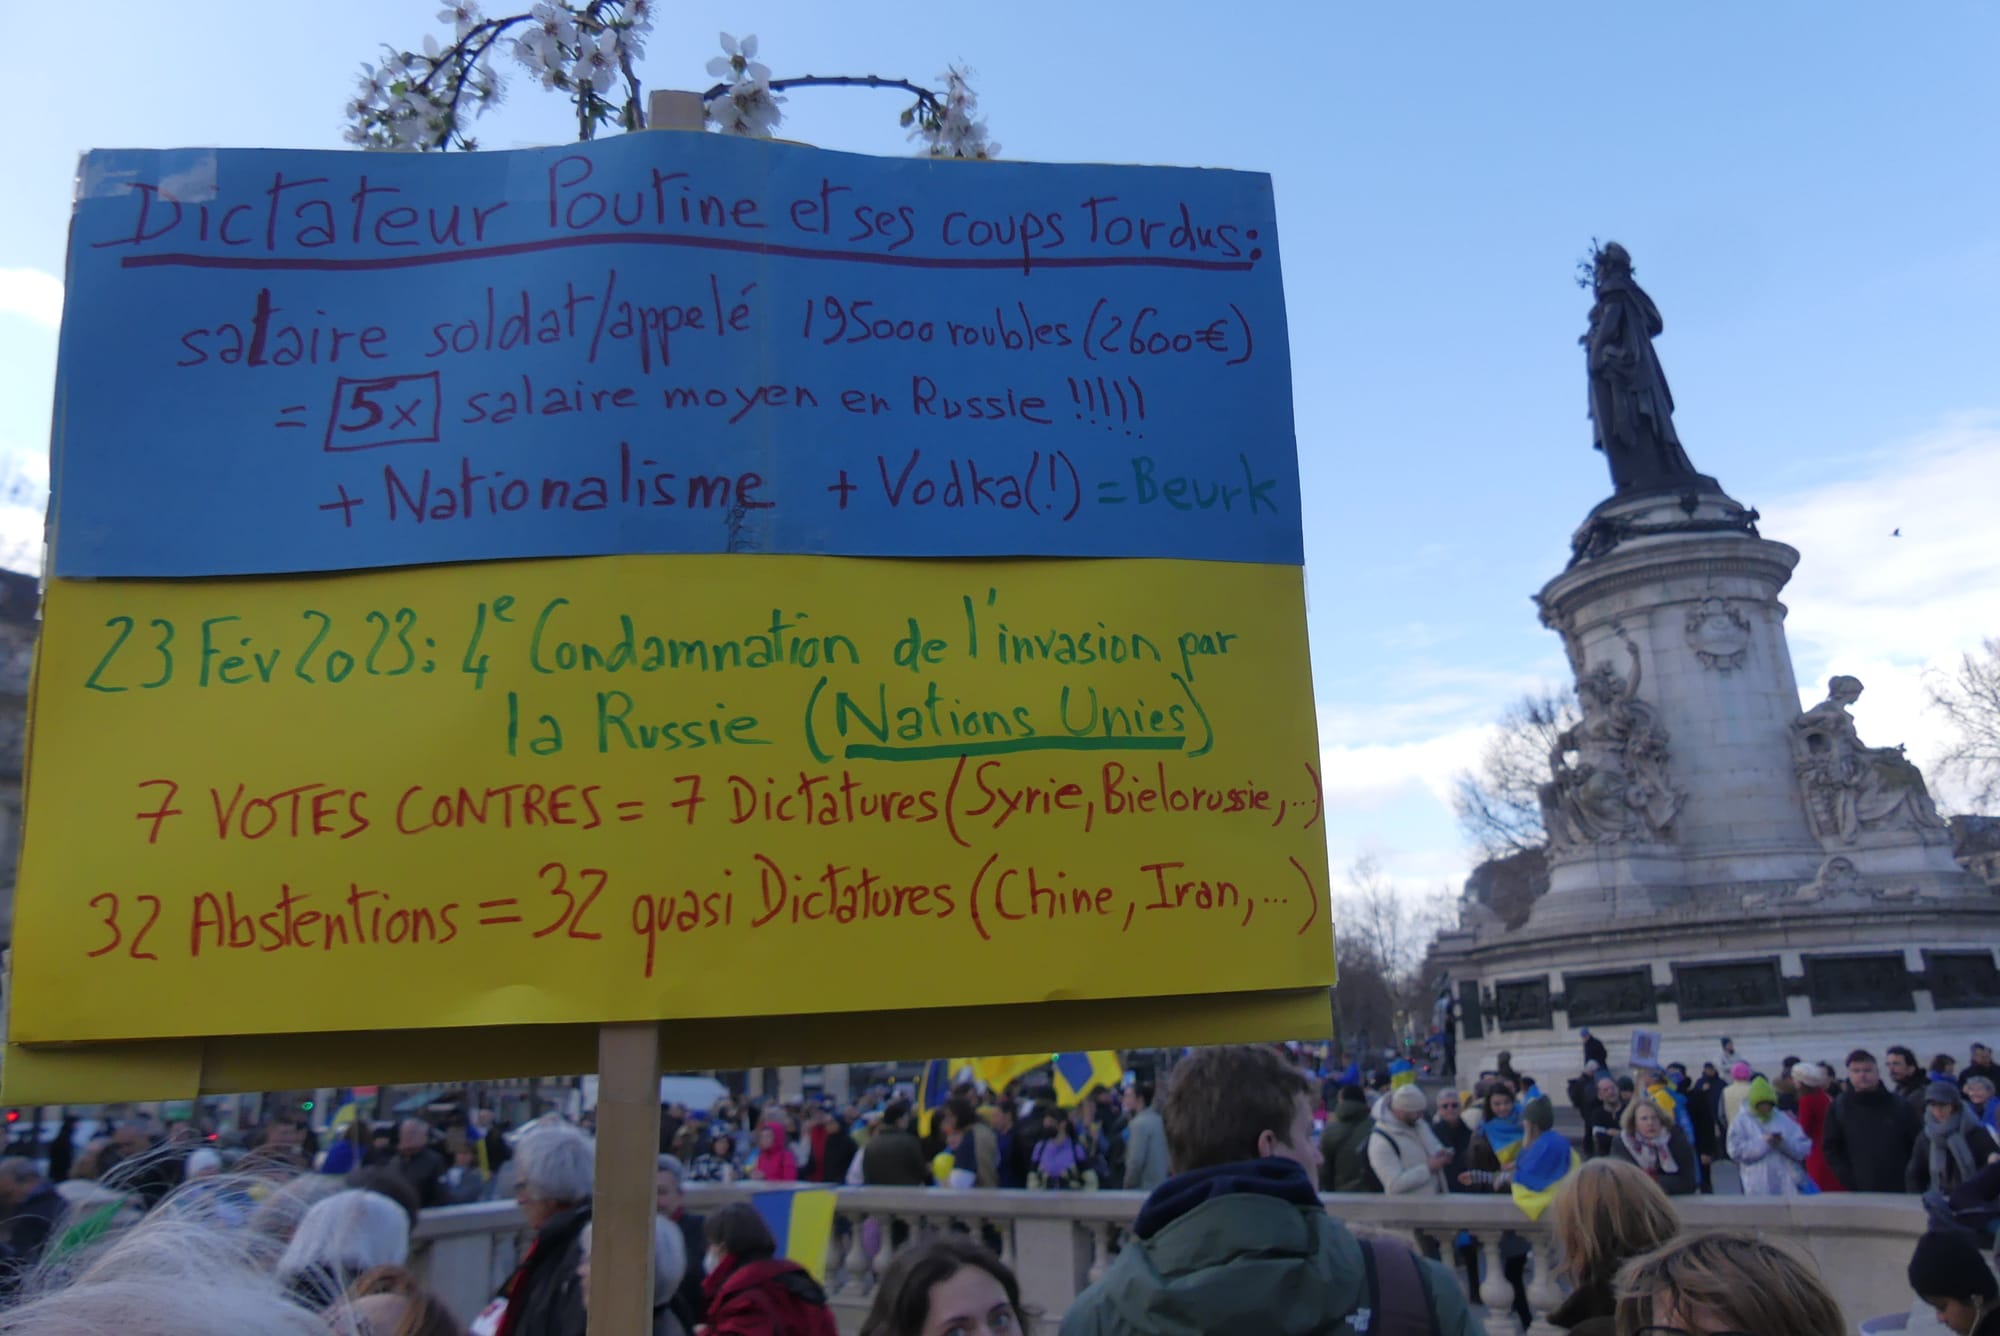 Dictateur Poutine et ses coups tordus:
salaire soldat/appelé 195000 roubles (2600€)
= 5x salaire moyen en Russie !!!!!
+ Nationalisme + Vodka(!) = Beurk
23 Fév 2023: 4e Condamnation de l'invasion par
la Russie (Nations Unies)
7 VOTES CONTRES = 7 Dictatures (Syrie, Biélorussie,...)
32 Abstentions = 32 quasi Dictatures (Chine, Iran,...)